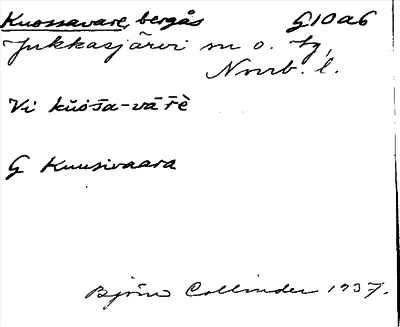 Kuossavare, bergås G10a6
Jukkasjärvi sn o. tg,
Norrb. l.
Vi kŭòs̄a-vā̀r̄ḕ
G Kuusivaara
Björn Collinder 1937.